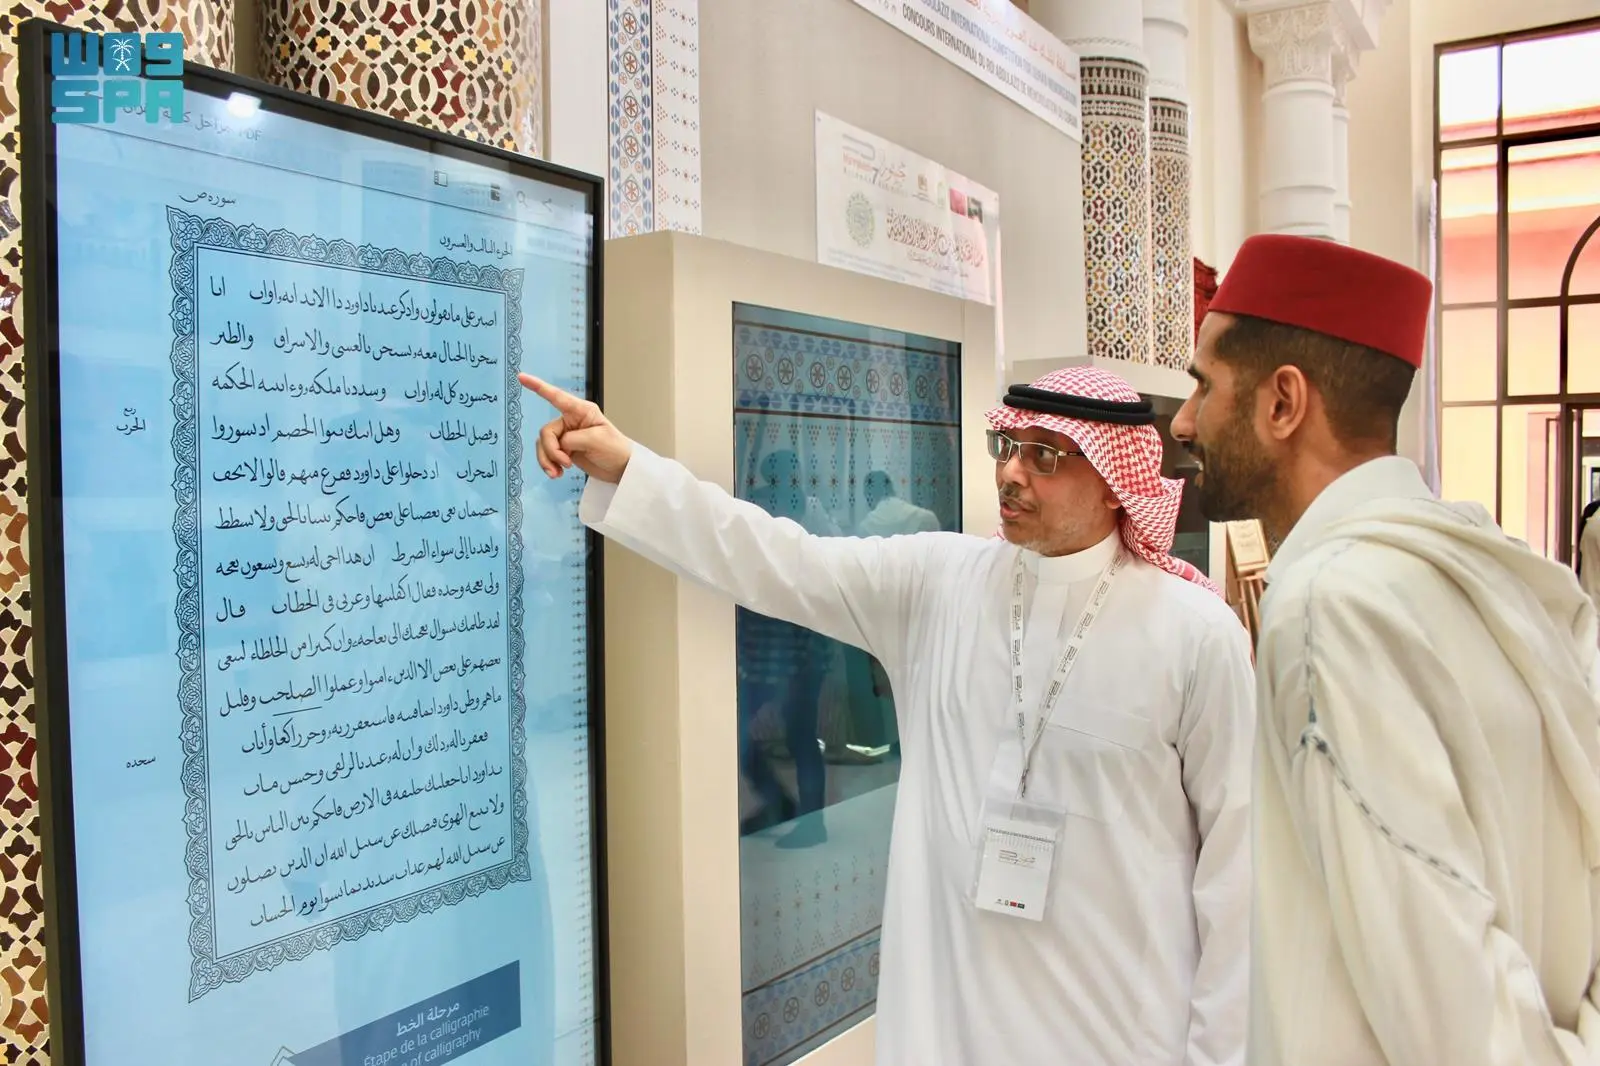 W09
SPA
PDF
سوره ص
الجزء الثالث والعشرون
اصبر على ما يقولون واذكر عبدنا داود ذا الايد انه اواب انا
سخرنا الجبال معه يسبحن بالعشي والاشراق والطير
محشوره كل له اواب وشددنا ملكه وءاتينه الحكمه
وفصل الخطاب وهل اتىك نبوا الخصم اذ تسوروا
المحراب اذ دخلوا على داود ففزع منهم قالوا لا تخف
خصمان بغى بعضنا على بعض فاحكم بيننا بالحق ولا تشطط
واهدنا إلى سواء الصرط ان هذا اخى له تسع وتسعون نعجه
ولى نعجه وحده فقال اكفلنيها وعزنى فى الخطاب قال
لقد ظلمك بسوال نعجتك الى نعاجه وان كثيرا من الخلطاء ليبغى
بعضهم على بعض الا الذين ءامنوا وعملوا الصلحت وقليل
ما هم وظن داود انما فتنه فاستغفر ربه وخر راكعا وأناب
فغفرنا له ذلك وان له عندنا لزلفى وحسن ماب
يداود انا جعلنك خليفه فى الارض فاحكم بين الناس بالحق
ولا تتبع الهوى فيضلك عن سبيل الله ان الذين يضلون
عن سبيل الله لهم عذاب شديد بما نسوا يوم الحساب
ربع
الحزب
سجده
مرحلة الخط
Étape de la calligraphie
of calligraphy
ABDULAZIZ INTERNATIONAL COMPETITION FOR QURAN MEMORIZATION
CONCOURS INTERNATIONAL DU ROI ABDULAZIZ DE MÉMORISATION DU CORAN
جسور